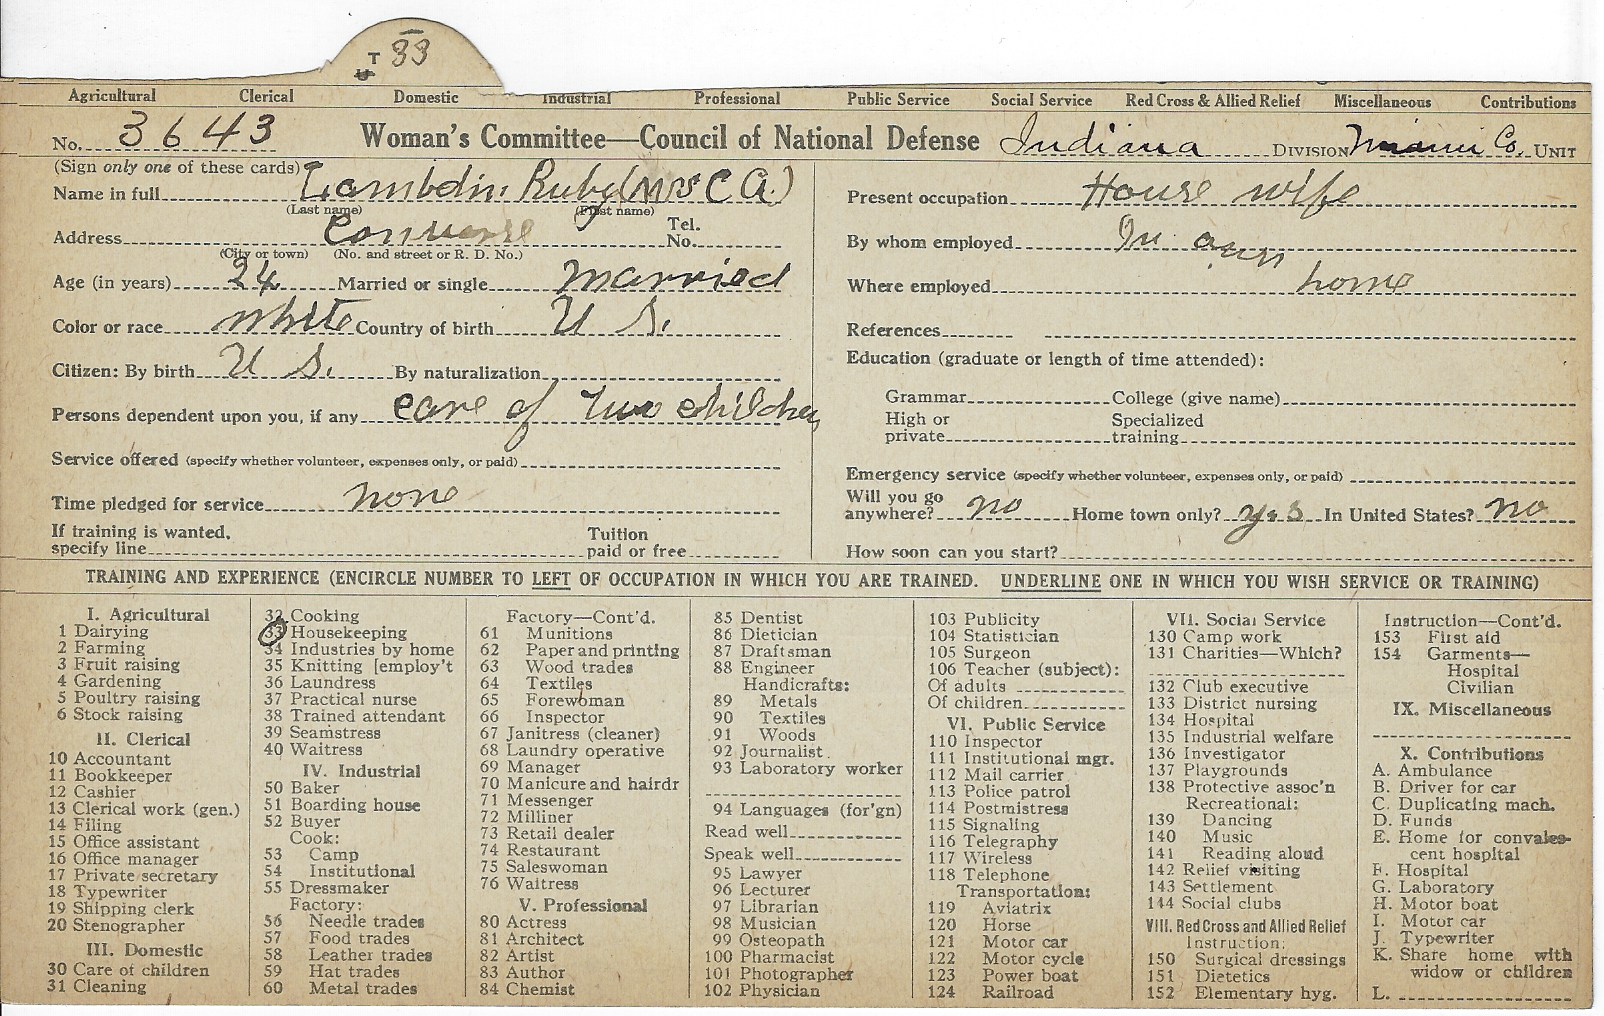 T 33
Agricultural Clerical Domestic Industrial Professional Public Service Social Service Red Cross & Allied Relief Miscellaneous Contributions
No. 3643 Woman's Committee—Council of National Defense Indiana DIVISION Miami Co. UNIT
(Sign only one of these cards)
Name in full Lambdin Ruby (Mrs C A.)
(Last name) (First name)
Address Converse Tel. No.
(City or town) (No. and street or R. D. No.)
Age (in years) 24 Married or single married
Color or race white Country of birth U S.
Citizen: By birth U S. By naturalization
Persons dependent upon you, if any care of two children
Service offered (specify whether volunteer, expenses only, or paid)
Time pledged for service none
If training is wanted, specify line Tuition paid or free
Present occupation House wife
By whom employed In own
Where employed home
References
Education (graduate or length of time attended):
Grammar College (give name)
High or private Specialized training
Emergency service (specify whether volunteer, expenses only, or paid)
Will you go anywhere? no Home town only? yes In United States? no
How soon can you start?
TRAINING AND EXPERIENCE (ENCIRCLE NUMBER TO LEFT OF OCCUPATION IN WHICH YOU ARE TRAINED. UNDERLINE ONE IN WHICH YOU WISH SERVICE OR TRAINING)
I. Agricultural
1 Dairying
2 Farming
3 Fruit raising
4 Gardening
5 Poultry raising
6 Stock raising
II. Clerical
10 Accountant
11 Bookkeeper
12 Cashier
13 Clerical work (gen.)
14 Filing
15 Office assistant
16 Office manager
17 Private secretary
18 Typewriter
19 Shipping clerk
20 Stenographer
III. Domestic
30 Care of children
31 Cleaning
32 Cooking
33 Housekeeping
34 Industries by home
35 Knitting [employ't
36 Laundress
37 Practical nurse
38 Trained attendant
39 Seamstress
40 Waitress
IV. Industrial
50 Baker
51 Boarding house
52 Buyer
Cook:
53 Camp
54 Institutional
55 Dressmaker
Factory:
56 Needle trades
57 Food trades
58 Leather trades
59 Hat trades
60 Metal trades
Factory—Cont'd.
61 Munitions
62 Paper and printing
63 Wood trades
64 Textiles
65 Forewoman
66 Inspector
67 Janitress (cleaner)
68 Laundry operative
69 Manager
70 Manicure and hairdr
71 Messenger
72 Milliner
73 Retail dealer
74 Restaurant
75 Saleswoman
76 Waitress
V. Professional
80 Actress
81 Architect
82 Artist
83 Author
84 Chemist
85 Dentist
86 Dietician
87 Draftsman
88 Engineer
Handicrafts:
89 Metals
90 Textiles
91 Woods
92 Journalist
93 Laboratory worker
94 Languages (for'gn)
Read well
Speak well
95 Lawyer
96 Lecturer
97 Librarian
98 Musician
99 Osteopath
100 Pharmacist
101 Photographer
102 Physician
103 Publicity
104 Statistician
105 Surgeon
106 Teacher (subject):
Of adults
Of children
VI. Public Service
110 Inspector
111 Institutional mgr.
112 Mail carrier
113 Police patrol
114 Postmistress
115 Signaling
116 Telegraphy
117 Wireless
118 Telephone
Transportation:
119 Aviatrix
120 Horse
121 Motor car
122 Motor cycle
123 Power boat
124 Railroad
VII. Social Service
130 Camp work
131 Charities—Which?
132 Club executive
133 District nursing
134 Hospital
135 Industrial welfare
136 Investigator
137 Playgrounds
138 Protective assoc'n
Recreational:
139 Dancing
140 Music
141 Reading aloud
142 Relief visiting
143 Settlement
144 Social clubs
VIII. Red Cross and Allied Relief
Instruction:
150 Surgical dressings
151 Dietetics
152 Elementary hyg.
Instruction—Cont'd.
153 First aid
154 Garments—
Hospital
Civilian
IX. Miscellaneous
X. Contributions
A. Ambulance
B. Driver for car
C. Duplicating mach.
D. Funds
E. Home for convales-
cent hospital
F. Hospital
G. Laboratory
H. Motor boat
I. Motor car
J. Typewriter
K. Share home with
widow or children
L.